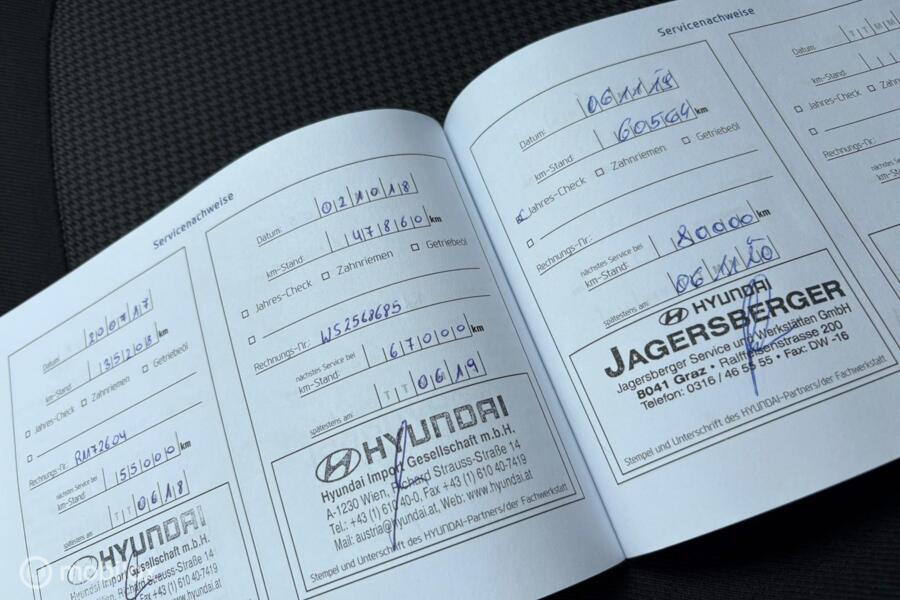 Servicenachweise
Datum: 200717
km-Stand: 35208 km
Jahres-Check Zahnriemen Getriebeöl
Rechnungs-Nr.: RM72604
nächstes Service bei
km-Stand: 55000 km
spätestens am: TT0618
HYUNDAI
Hyundai Import Gesellschaft m.b.H.
A-1230 Wien, Richard Strauss-Straße 14
Datum: 021018
km-Stand: 47860 km
Jahres-Check Zahnriemen Getriebeöl
Rechnungs-Nr.: WS2568685
nächstes Service bei
km-Stand: 67000 km
spätestens am: TT0619
HYUNDAI
Hyundai Import Gesellschaft m.b.H.
A-1230 Wien, Richard Strauss-Straße 14
Tel.: +43 (1) 610 40-0, Fax +43 (1) 610 40-7419
Mail: austria@hyundai.at, Web: www.hyundai.at
Stempel und Unterschrift des HYUNDAI-Partners/der Fachwerkstatt
Servicenachweise
Datum: 061119
km-Stand: 60564 km
Jahres-Check Zahnriemen Getriebeöl
Rechnungs-Nr.:
nächstes Service bei
km-Stand: 80000 km
spätestens am: 061120
HYUNDAI
JAGERSBERGER
Jagersberger Service und Werkstätten GmbH
8041 Graz • Raiffeisenstrasse 200
Telefon: 0316 / 46 55 55 • Fax: DW -16
Stempel und Unterschrift des HYUNDAI-Partners/der Fachwerkstatt
Datum: TTMM
km-Stand:
Jahres-Check
Rechnungs-Nr.:
nächstes Se
km-Stan